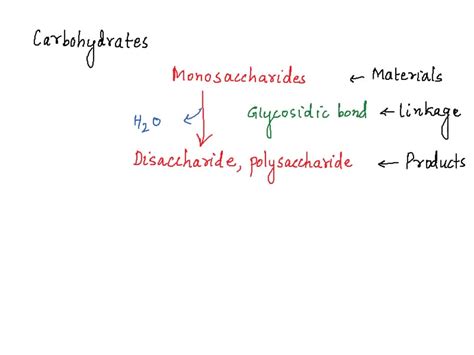 Carbohydrates
Monosaccharides ← Materials
H₂O Glycosidic bond ← Linkage
Disaccharide, polysaccharide ← Products